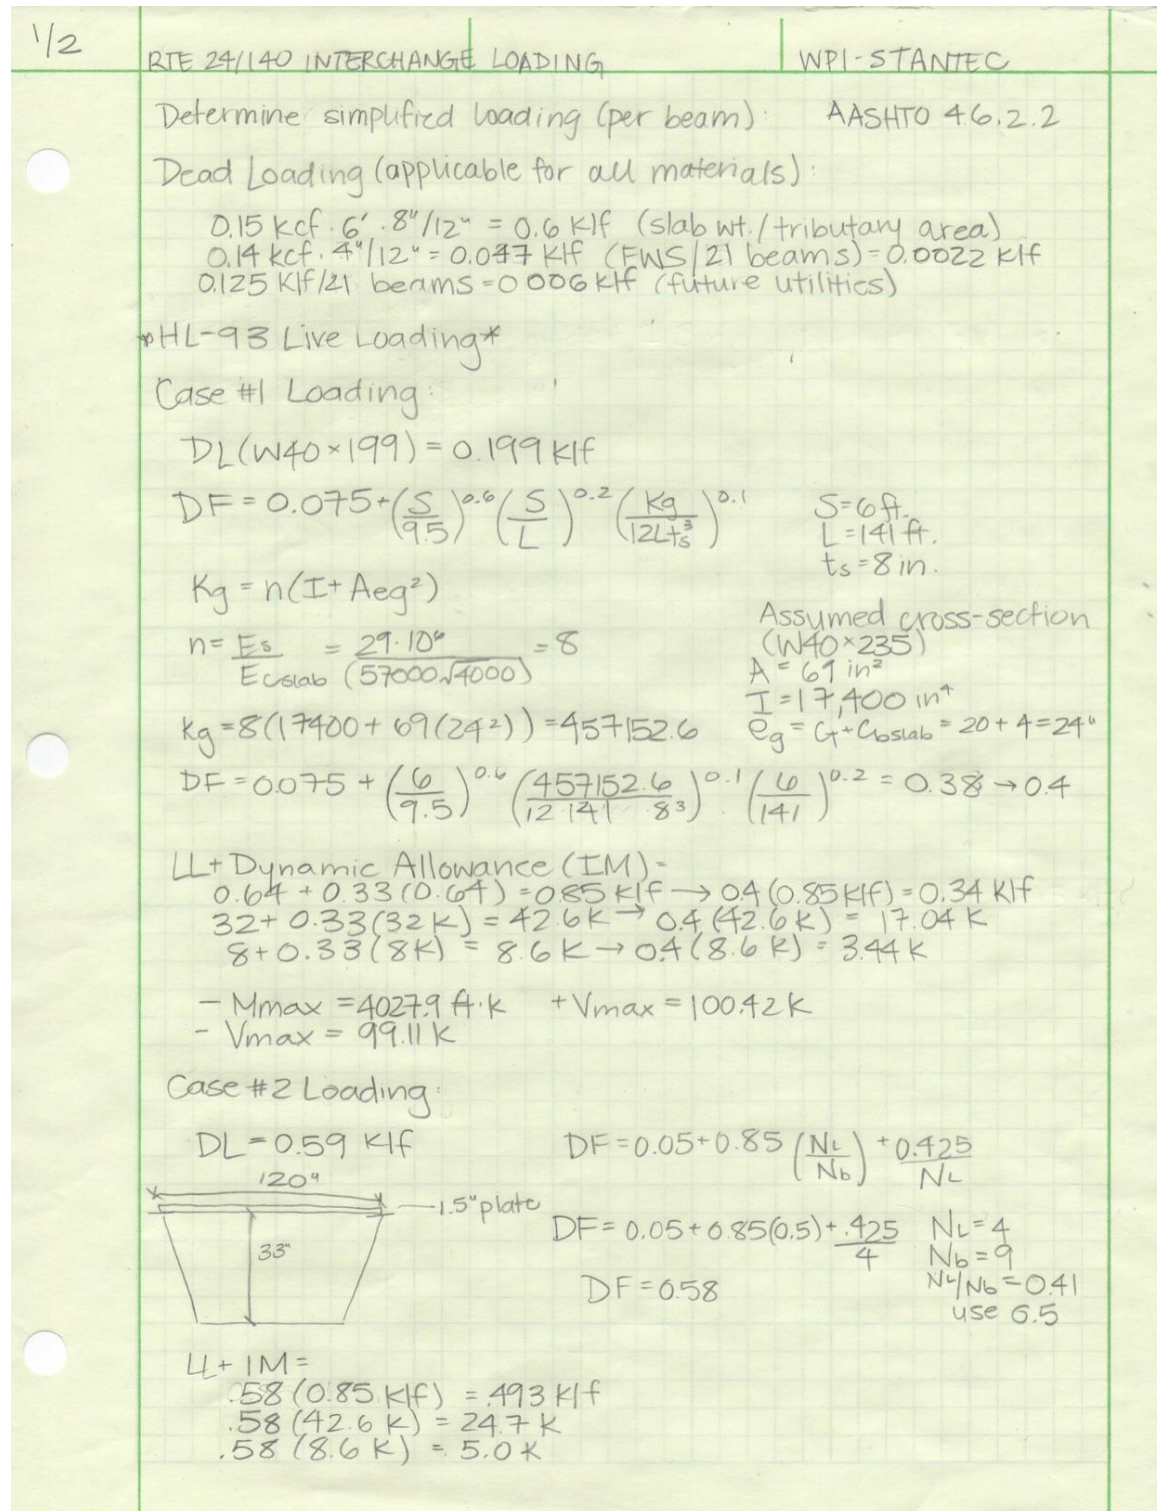 1/2
RTE 24/140 INTERCHANGE LOADING WPI-STANTEC
Determine simplified loading (per beam): AASHTO 4.6.2.2
Dead Loading (applicable for all materials):
0.15 kcf · 6' · 8"/12" = 0.6 klf (slab wt./tributary area)
0.14 kcf · 4"/12" = 0.047 klf (FWS/21 beams) = 0.0022 klf
0.125 klf/21 beams = 0.006 klf (future utilities)
*HL-93 Live Loading*
Case #1 Loading:
DL (W40×199) = 0.199 klf
DF = 0.075 + (S/9.5)^0.6 (S/L)^0.2 (Kg/12Lts³)^0.1
S = 6 ft.
L = 141 ft.
ts = 8 in.
Kg = n(I + Aeg²)
n = Es/Ecslab = 29·10⁶/(57000√4000) = 8
Assumed cross-section
(W40×235)
A = 69 in²
I = 17,400 in⁴
eg = G + Cbslab = 20 + 4 = 24"
Kg = 8(17400 + 69(24²)) = 457152.6
DF = 0.075 + (6/9.5)^0.6 (457152.6/12·141·8³)^0.1 · (6/141)^0.2 = 0.38 → 0.4
LL + Dynamic Allowance (IM) =
0.64 + 0.33(0.64) = 0.85 klf → 0.4(0.85 klf) = 0.34 klf
32 + 0.33(32 k) = 42.6 k → 0.4(42.6 k) = 17.04 k
8 + 0.33(8k) = 8.6 k → 0.4(8.6 k) = 3.44 k
- Mmax = 4027.9 ft·k + Vmax = 100.42 k
- Vmax = 99.11 k
Case #2 Loading:
DL = 0.59 klf
DF = 0.05 + 0.85 (NL/Nb) + 0.425/NL
120"
1.5" plate
33"
DF = 0.05 + 0.85(0.5) + .425/4
NL = 4
Nb = 9
NL/Nb = 0.41
use 0.5
DF = 0.58
LL + IM =
.58 (0.85 klf) = .493 klf
.58 (42.6 k) = 24.7 k
.58 (8.6 k) = 5.0 k